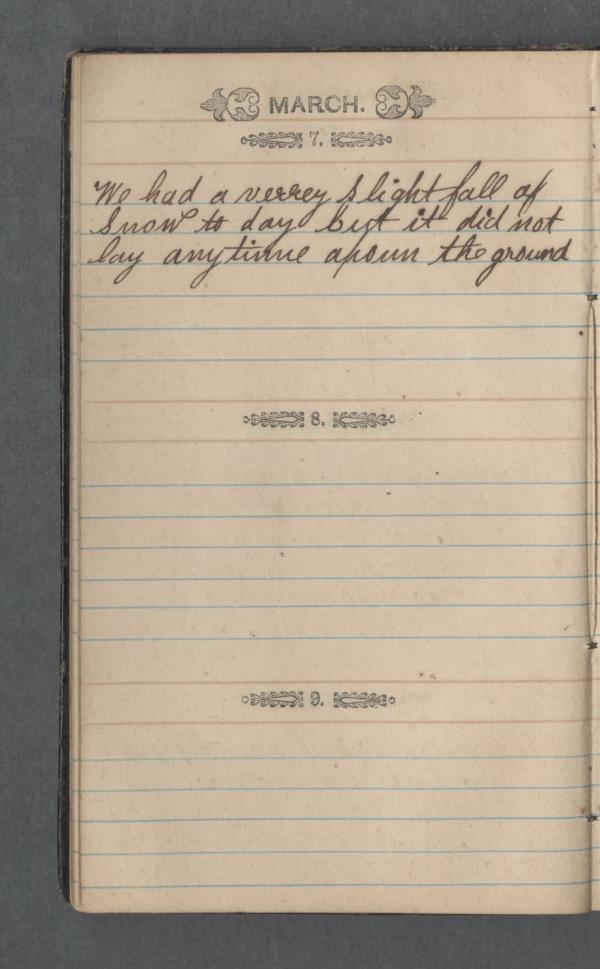 MARCH.
7.
We had a verrey slight fall of
Snow to day but it did not
lay anytime apoun the ground
8.
9.